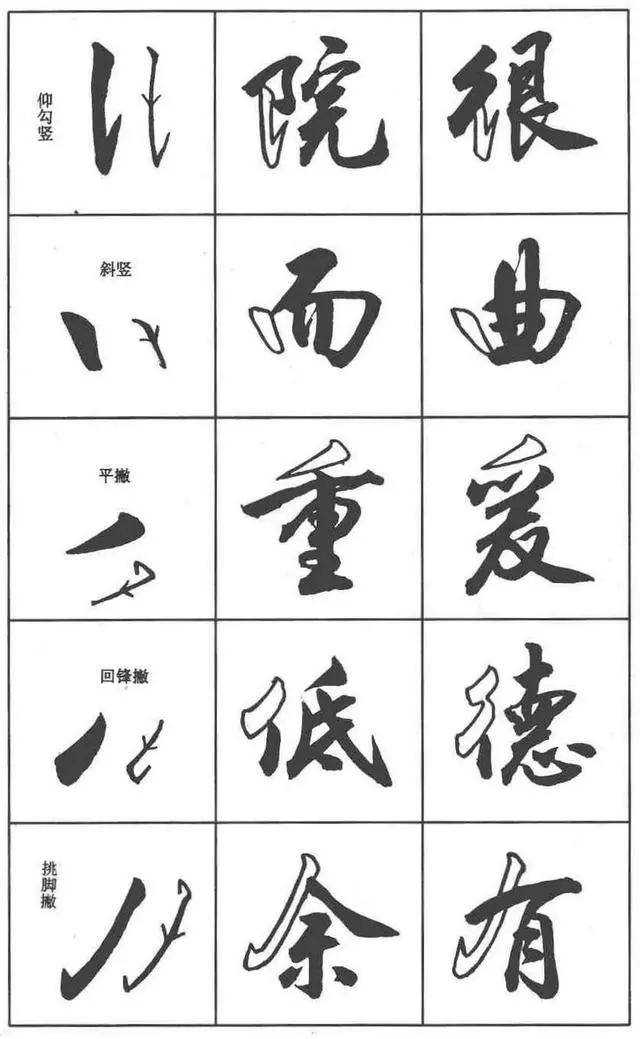 仰勾竖 院 很
斜竖 而 曲
平撇 重 爰
回锋撇 低 德
挑脚撇 余 有